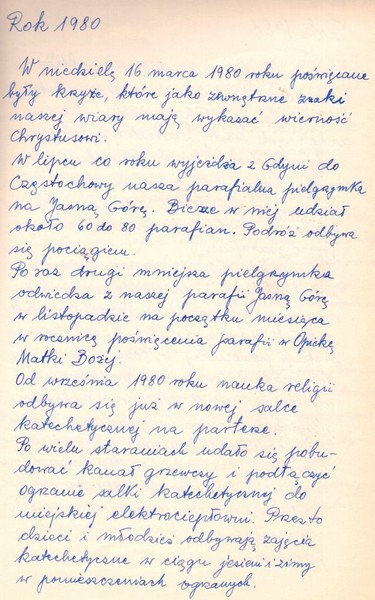 Rok 1980
W niedzielę 16. marca 1980 roku poświęcane
były krzyże, które jako zewnętrzne znaki
naszej wiary mają wykazać wierność
Chrystusowi.
W lipcu co roku wyjeżdża z Gdyni do
Częstochowy nasza parafialna pielgrzymka
na Jasną Górę. Bierze w niej udział
około 60 do 80 parafian. Podróż odbywa
się pociągiem.
Po raz drugi mniejsza pielgrzymka
odwiedza z naszej parafii Jasną Górę
w listopadzie na początku miesiąca
w rocznicę poświęcenia parafii w Opiekę
Matki Bożej.
Od września 1980 roku nauka religii
odbywa się już w nowej salce
katechetycznej na parterze.
Po wielu staraniach udało się pobu-
dować kanał grzewczy i podłączyć
ogrzanie salki katechetycznej do
miejskiej elektrociepłowni. Przeto
dzieci i młodzież odbywają zajęcia
katechetyczne w ciągu jesieni i zimy
w pomieszczeniach ogrzanych.